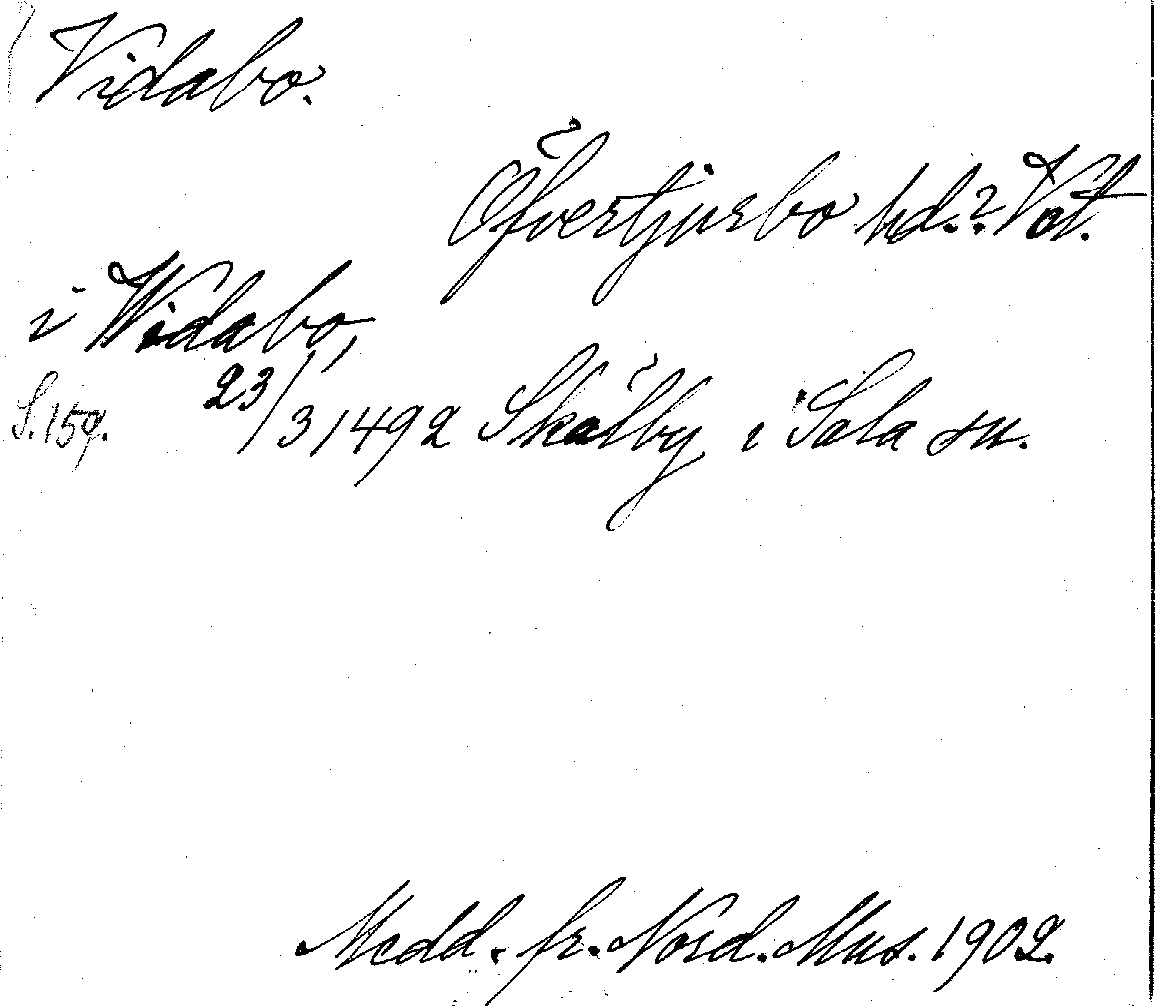 Vidabo.
Öfvertjurbo hd.? Vst.
i Widabo,
S. 159. 23/3 1492 Skälby i Sala sn.
Medd. fr. Nord. Mus. 1902.